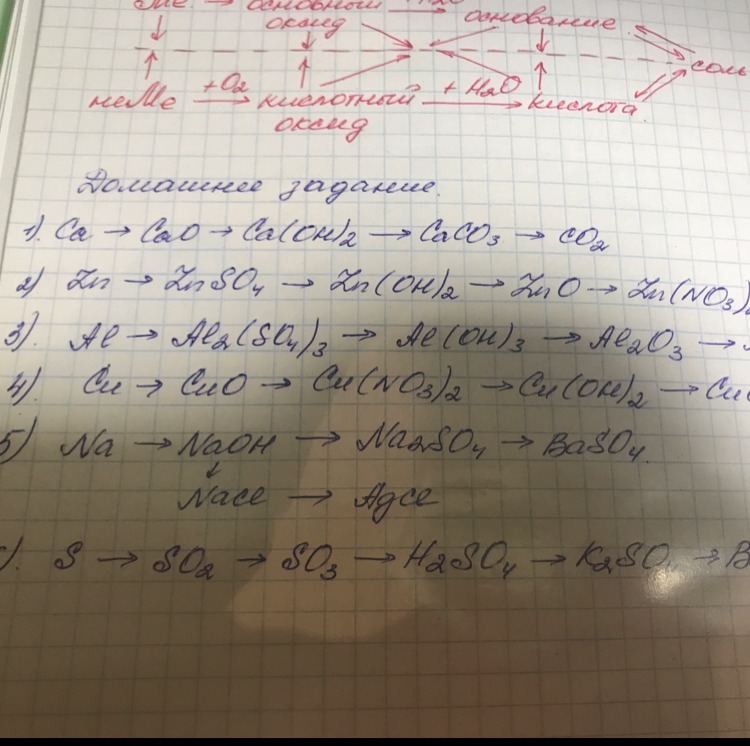 оксид основание
соль
неМе +O2 кислотный + H2O кислота
оксид
Домашнее задание.
1). Ca → CaO → Ca(OH)2 → CaCO3 → CO2
2) Zn → ZnSO4 → Zn(OH)2 → ZnO → Zn(NO3)2
3). Al → Al2(SO4)3 → Al(OH)3 → Al2O3 →
4). Cu → CuO → Cu(NO3)2 → Cu(OH)2 →
5) Na → NaOH → Na2SO4 → BaSO4.
↓
NaCl → AgCl
). S → SO2 → SO3 → H2SO4 → K2SO4 → B